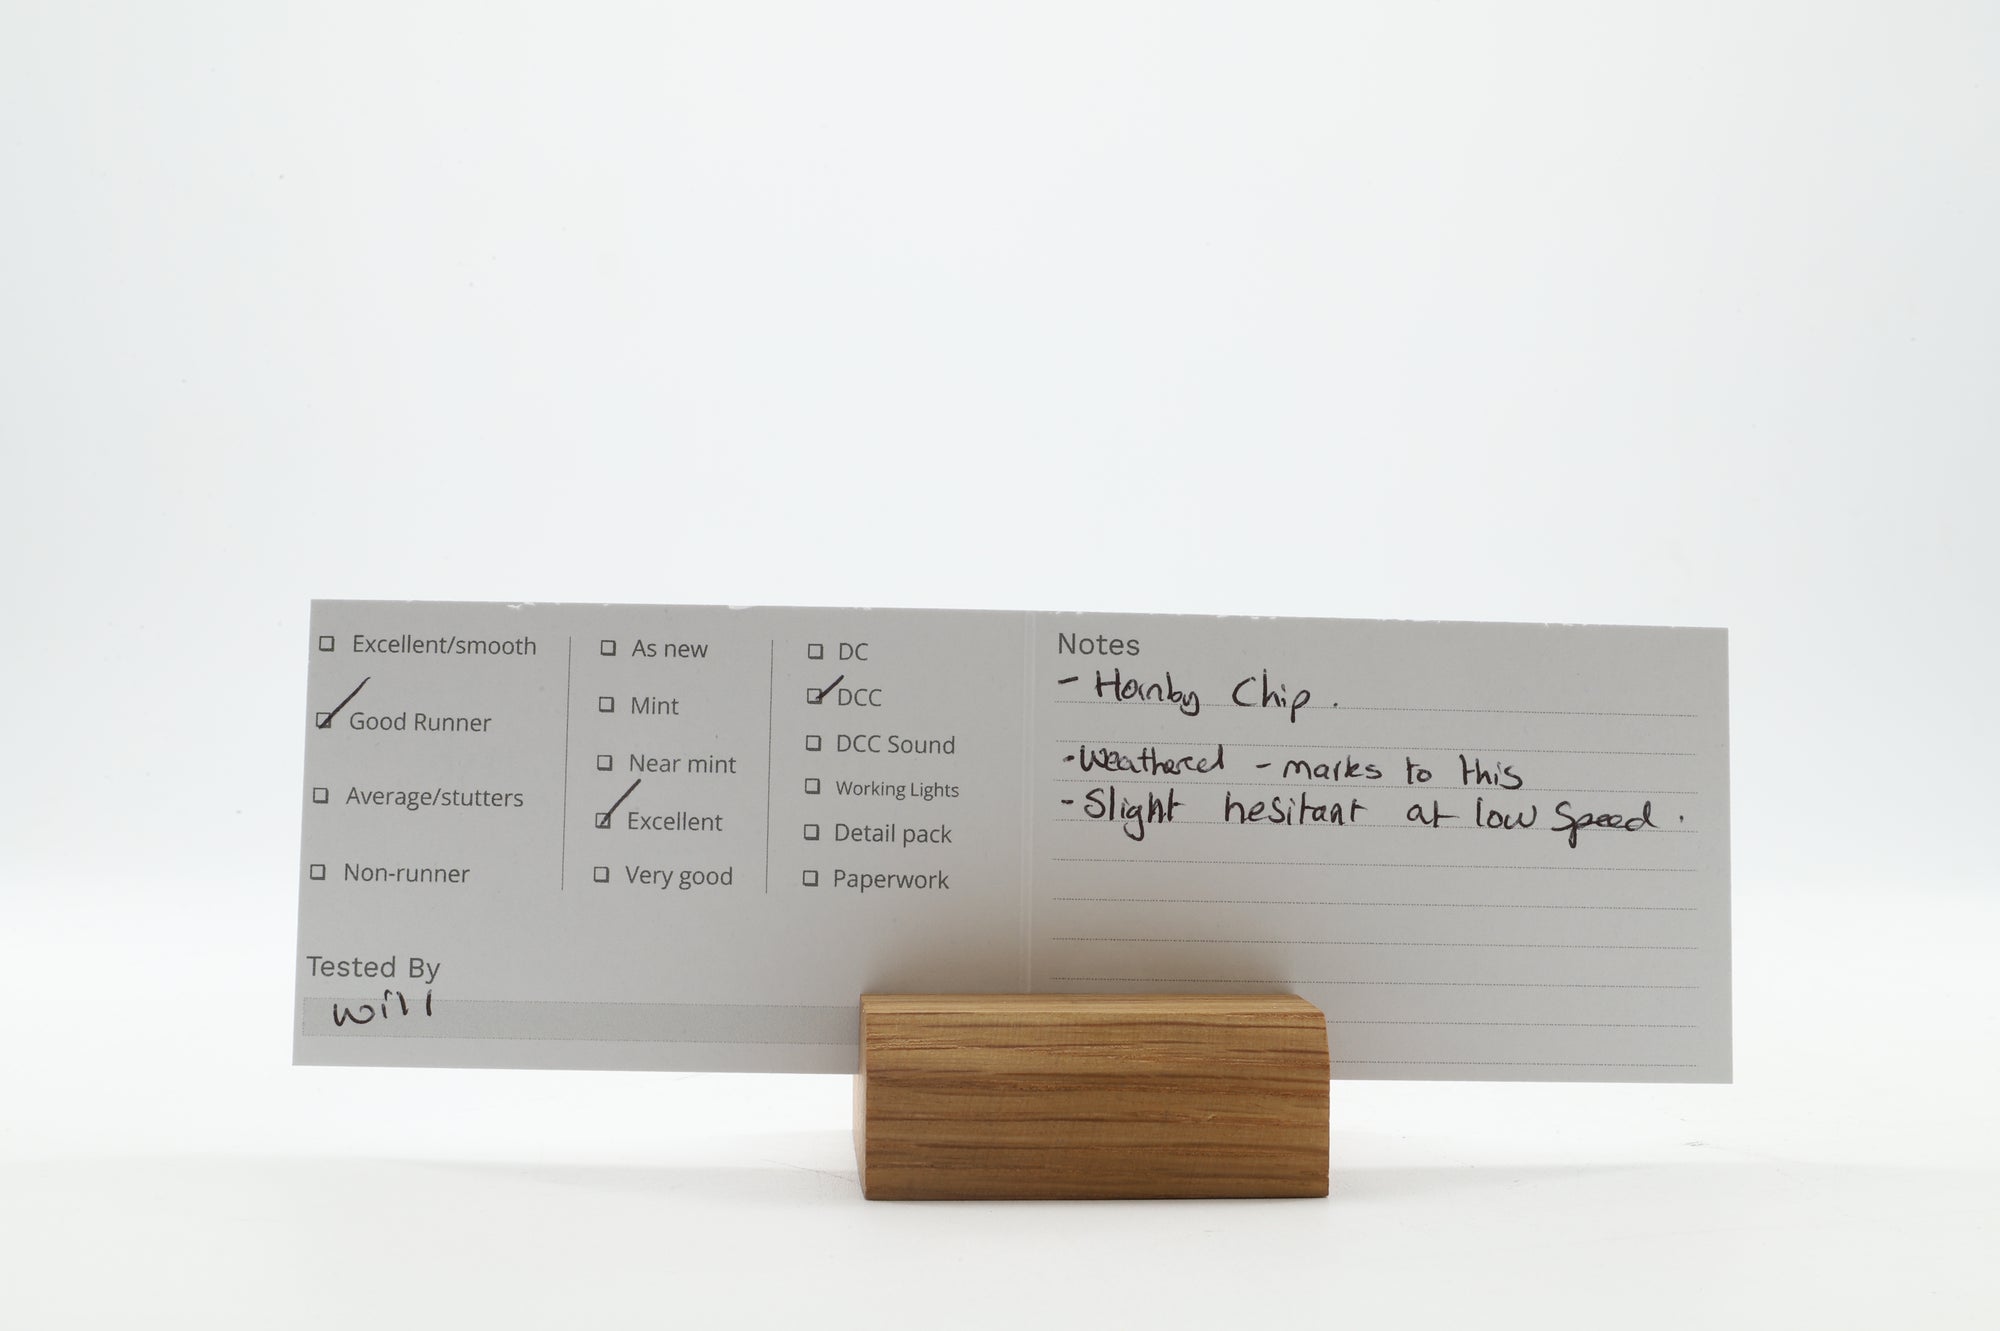 Excellent/smooth
Good Runner
Average/stutters
Non-runner
As new
Mint
Near mint
Excellent
Very good
DC
DCC
DCC Sound
Working Lights
Detail pack
Paperwork
Tested By
Will
Notes
- Hornby Chip.
- Weathered - marks to this
- Slight hesitant at low Speed.